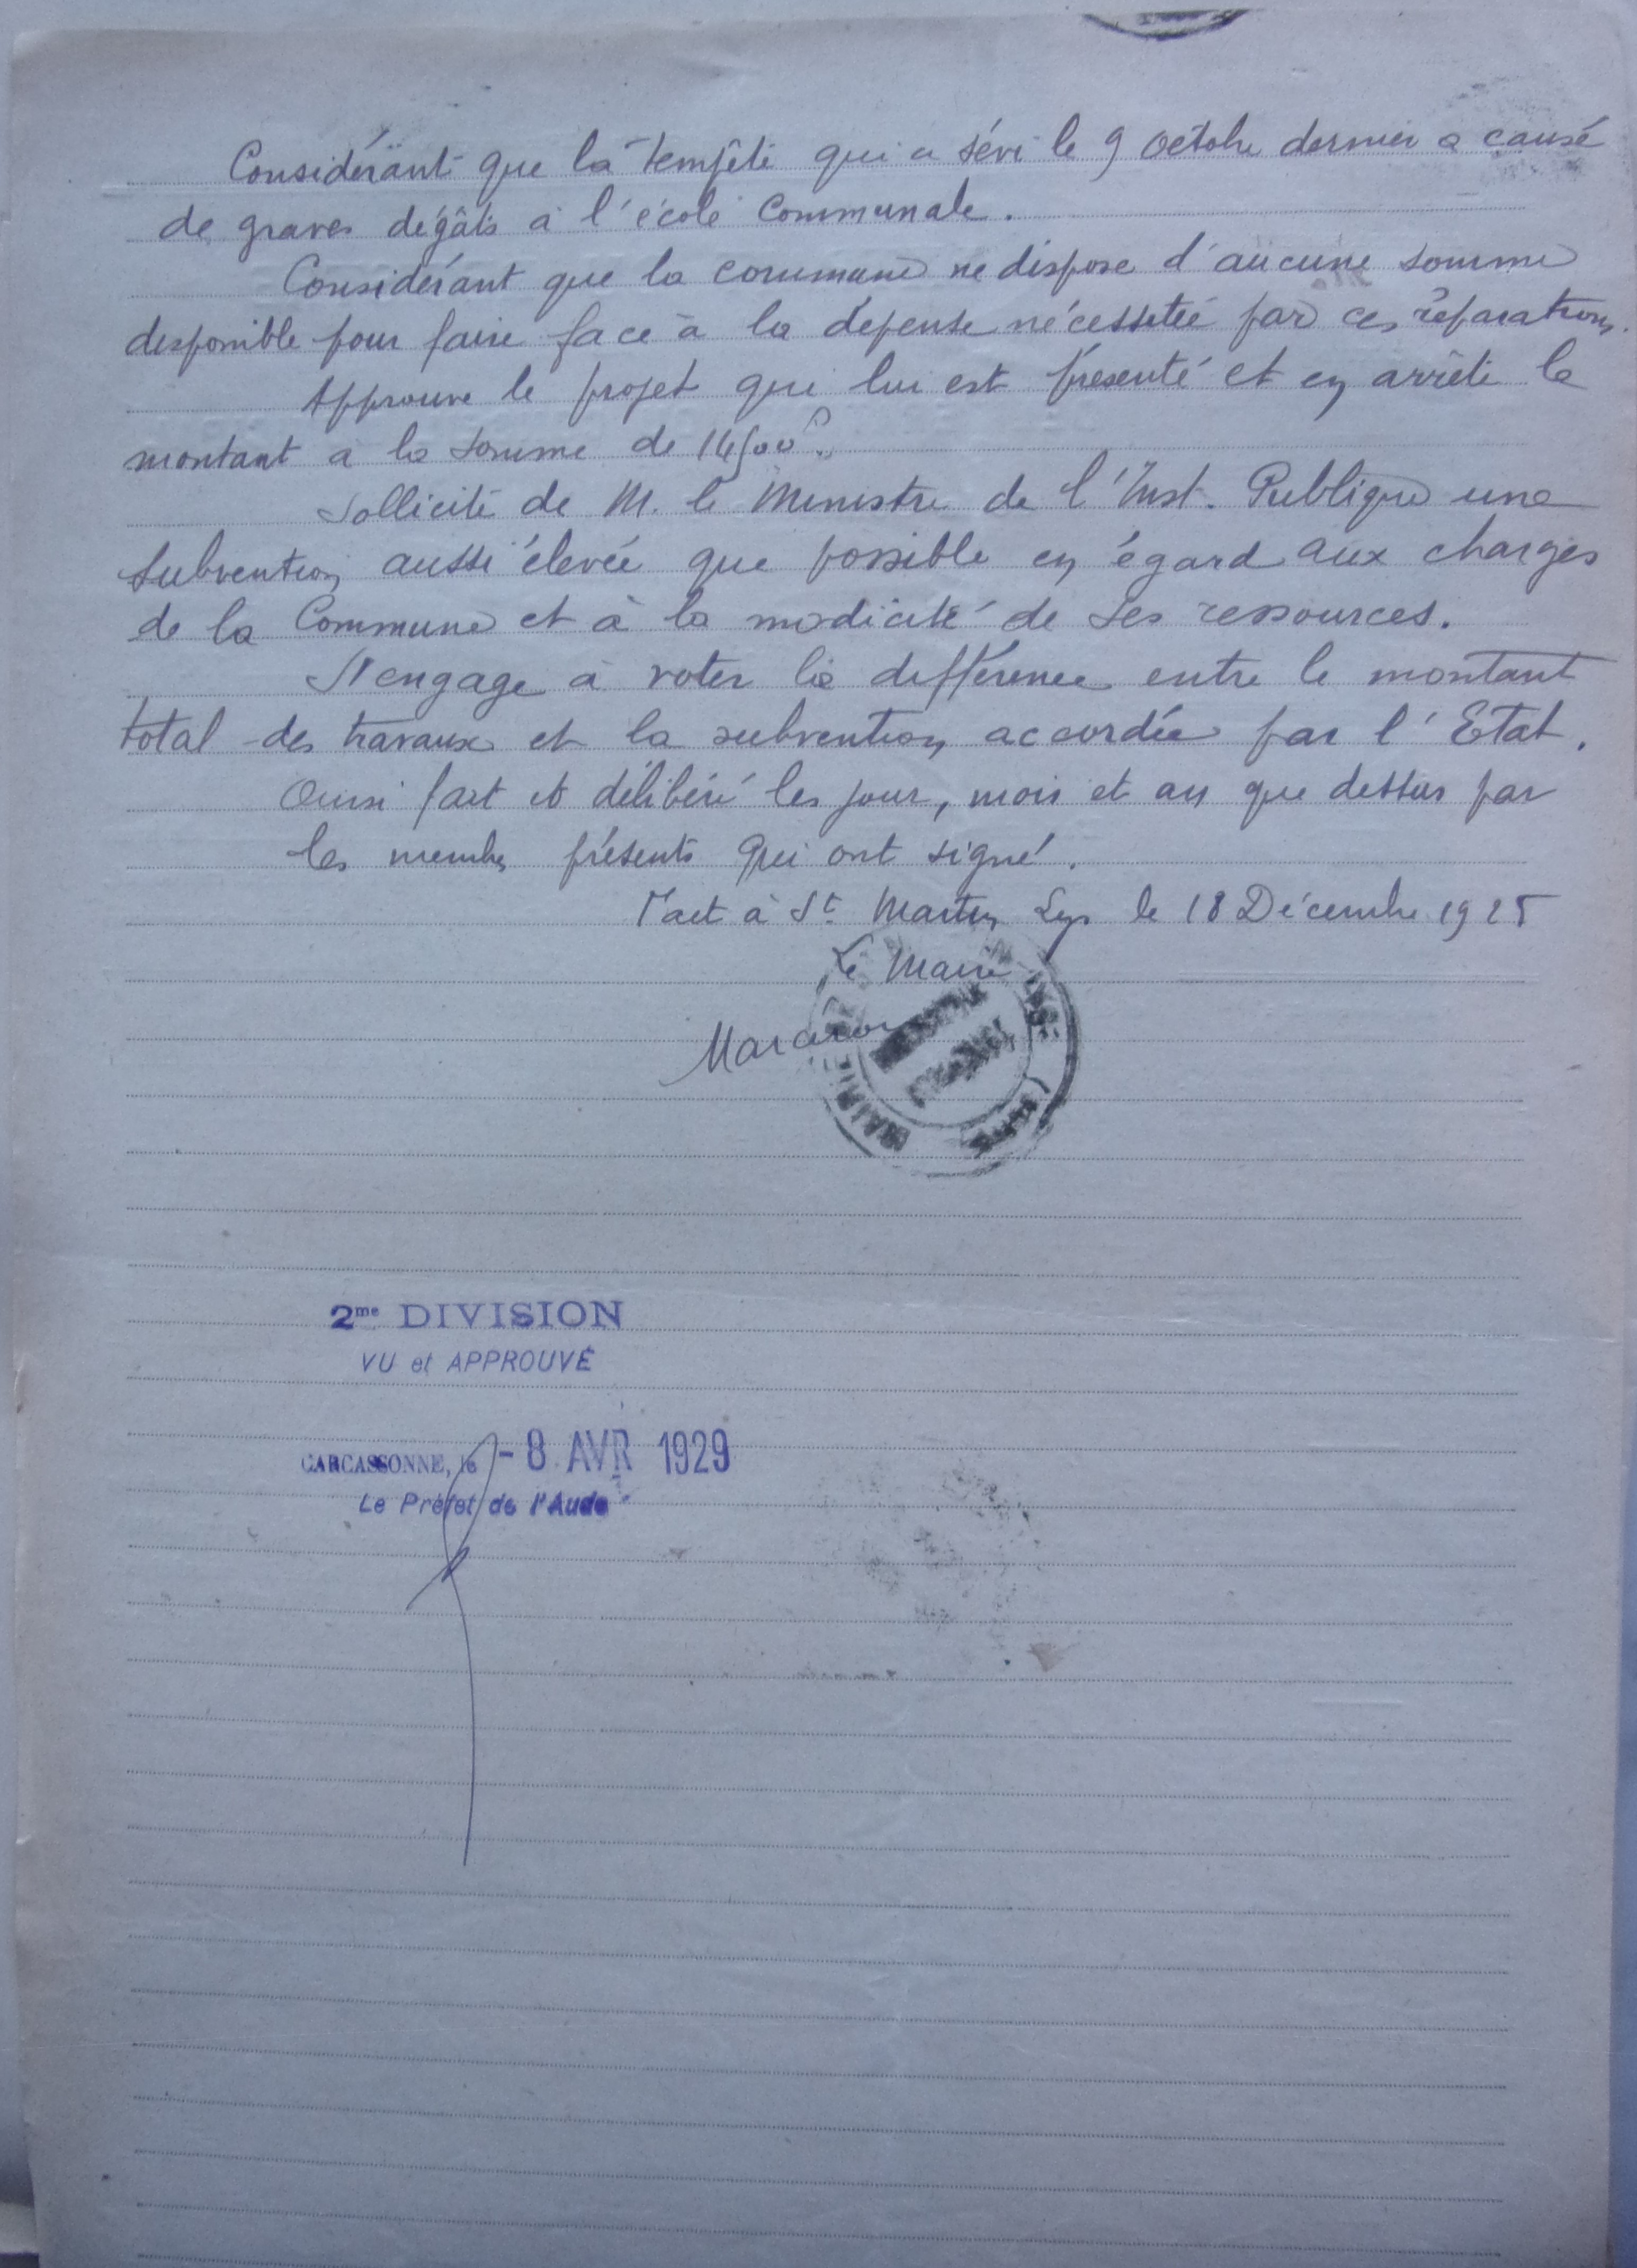 Considérant que la tempête qui a sévi le 9 octobre dernier a causé
de graves dégâts à l'école Communale.
Considérant que la commune ne dispose d'aucune somme
disponible pour faire face à la dépense nécessitée par ces réparations.
Approuve le projet qui lui est présenté et en arrête le
montant à la somme de
Sollicite de M. le Ministre de l'Inst. Publique une
subvention aussi élevée que possible en égard aux charges
de la Commune et à la modicité de ses ressources.
S'engage à voter la différence entre le montant
total des travaux et la subvention accordée par l'Etat.
Ainsi fait et délibéré les jour, mois et an que dessus par
les membres présents qui ont signé.
Fait à St Martin Lys le 18 Décembre
Le Maire
MAIRIE
(Aude)
2me DIVISION
VU et APPROUVÉ
CARCASSONNE, le - 8 AVR 1929
Le Préfet de l'Aude